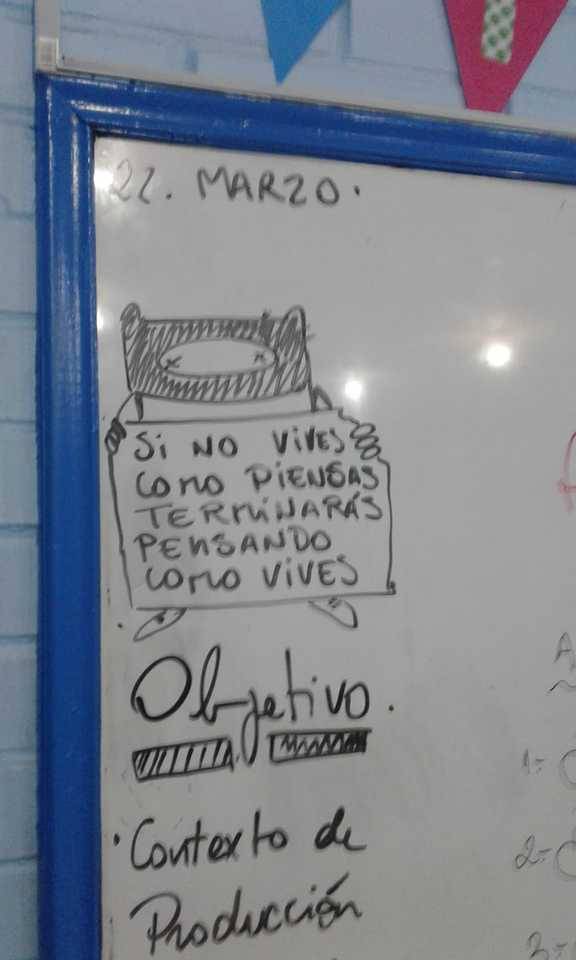 22. MARZO.
Si NO ViVES
COMO PiENSAS
TERMiNARÁS
PENSANDO
COMO ViVES
Objetivo.
• Contexto de
Producción
A
1=
2=
3=